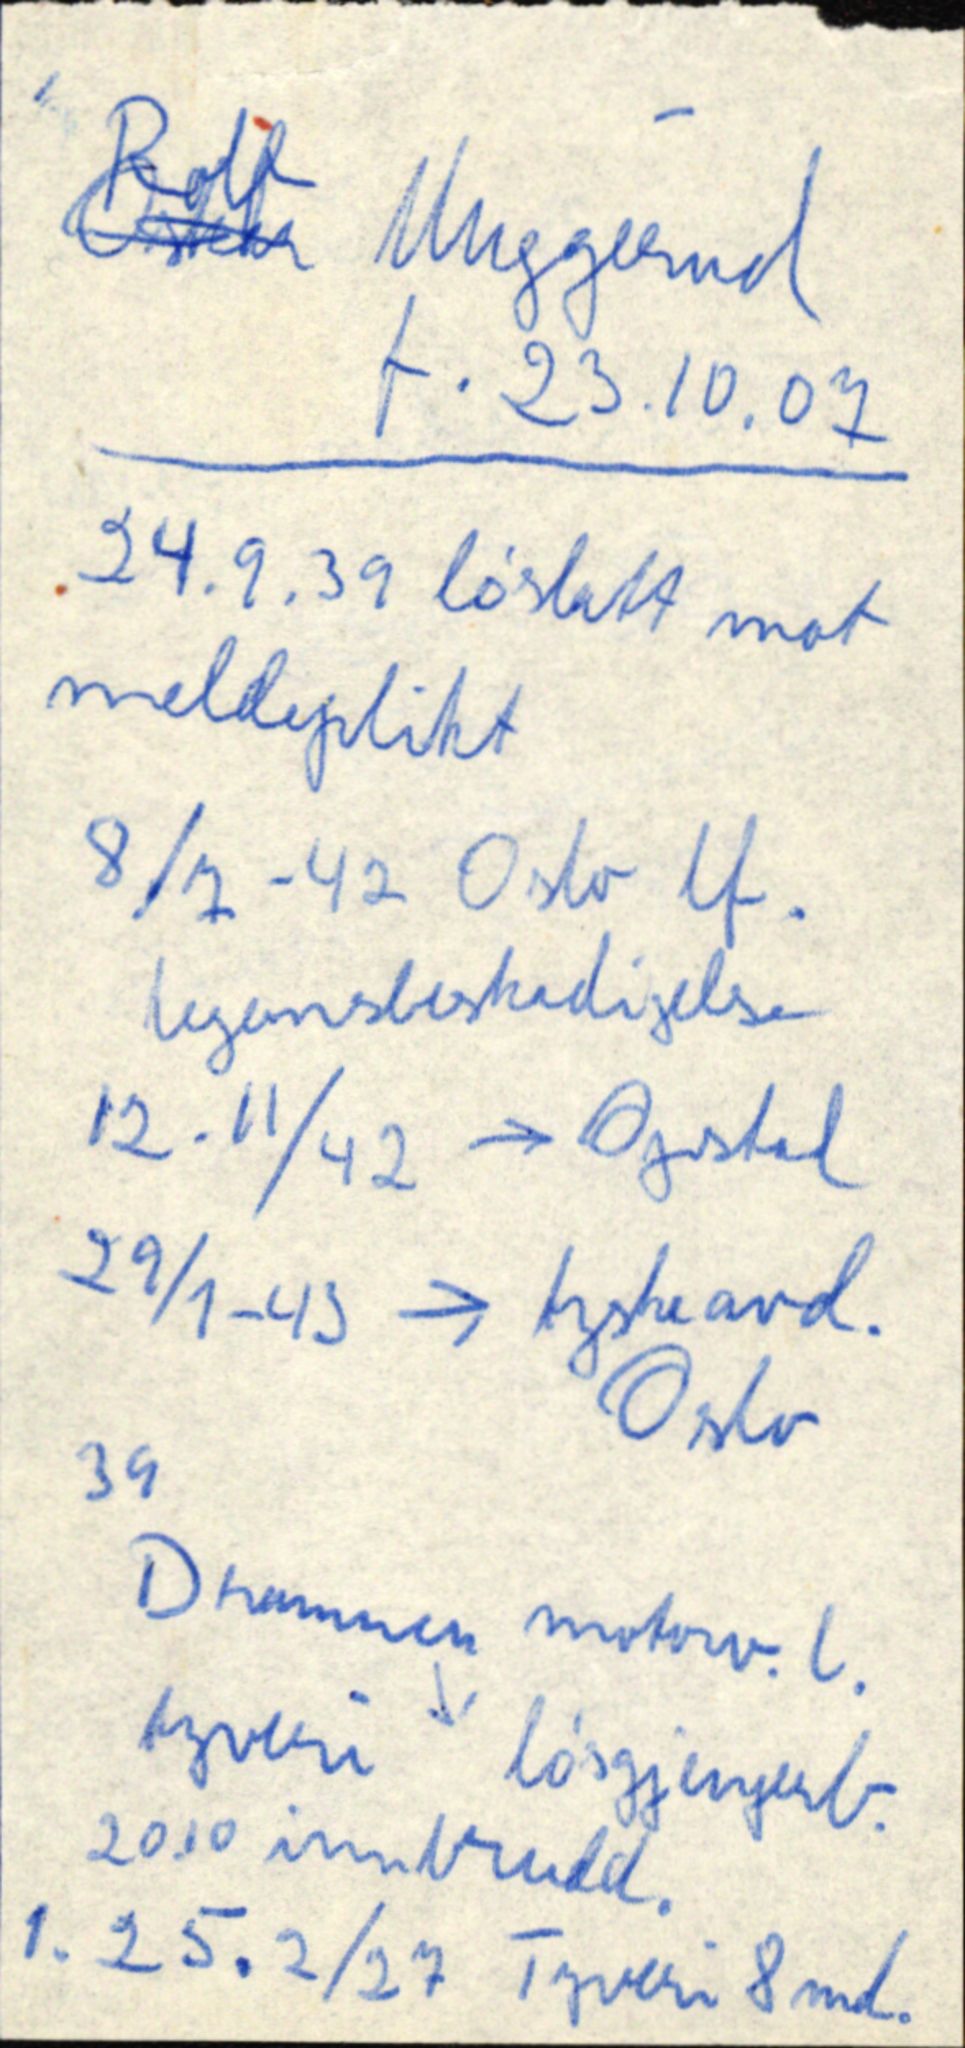 Rolf Muggerud
f. 23.10.07
24.9.39 löslatt mot
meldeplikt
8/7-42 Oslo lf.
legemsbeskadigelse
12.11/42 → Opstad
29/1-43 → tyske avd.
Oslo
39
Drammen motorv. l.
tyveri ↓ lösgjengerb.
20.10 innbrudd.
1. 25.2/27 Tyveri 8 md.